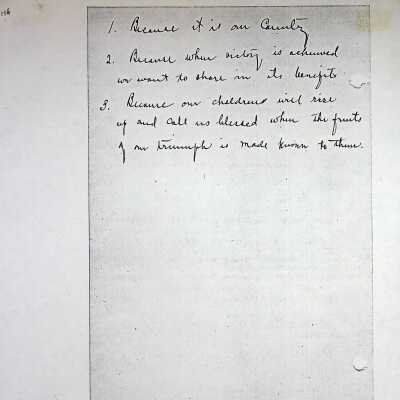 1. Because it is our Country
2. Because when victory is achieved
we want to share in its benefits.
3. Because our childrens will rise
up and call us blessed when the fruits
of our triumph is made known to them.